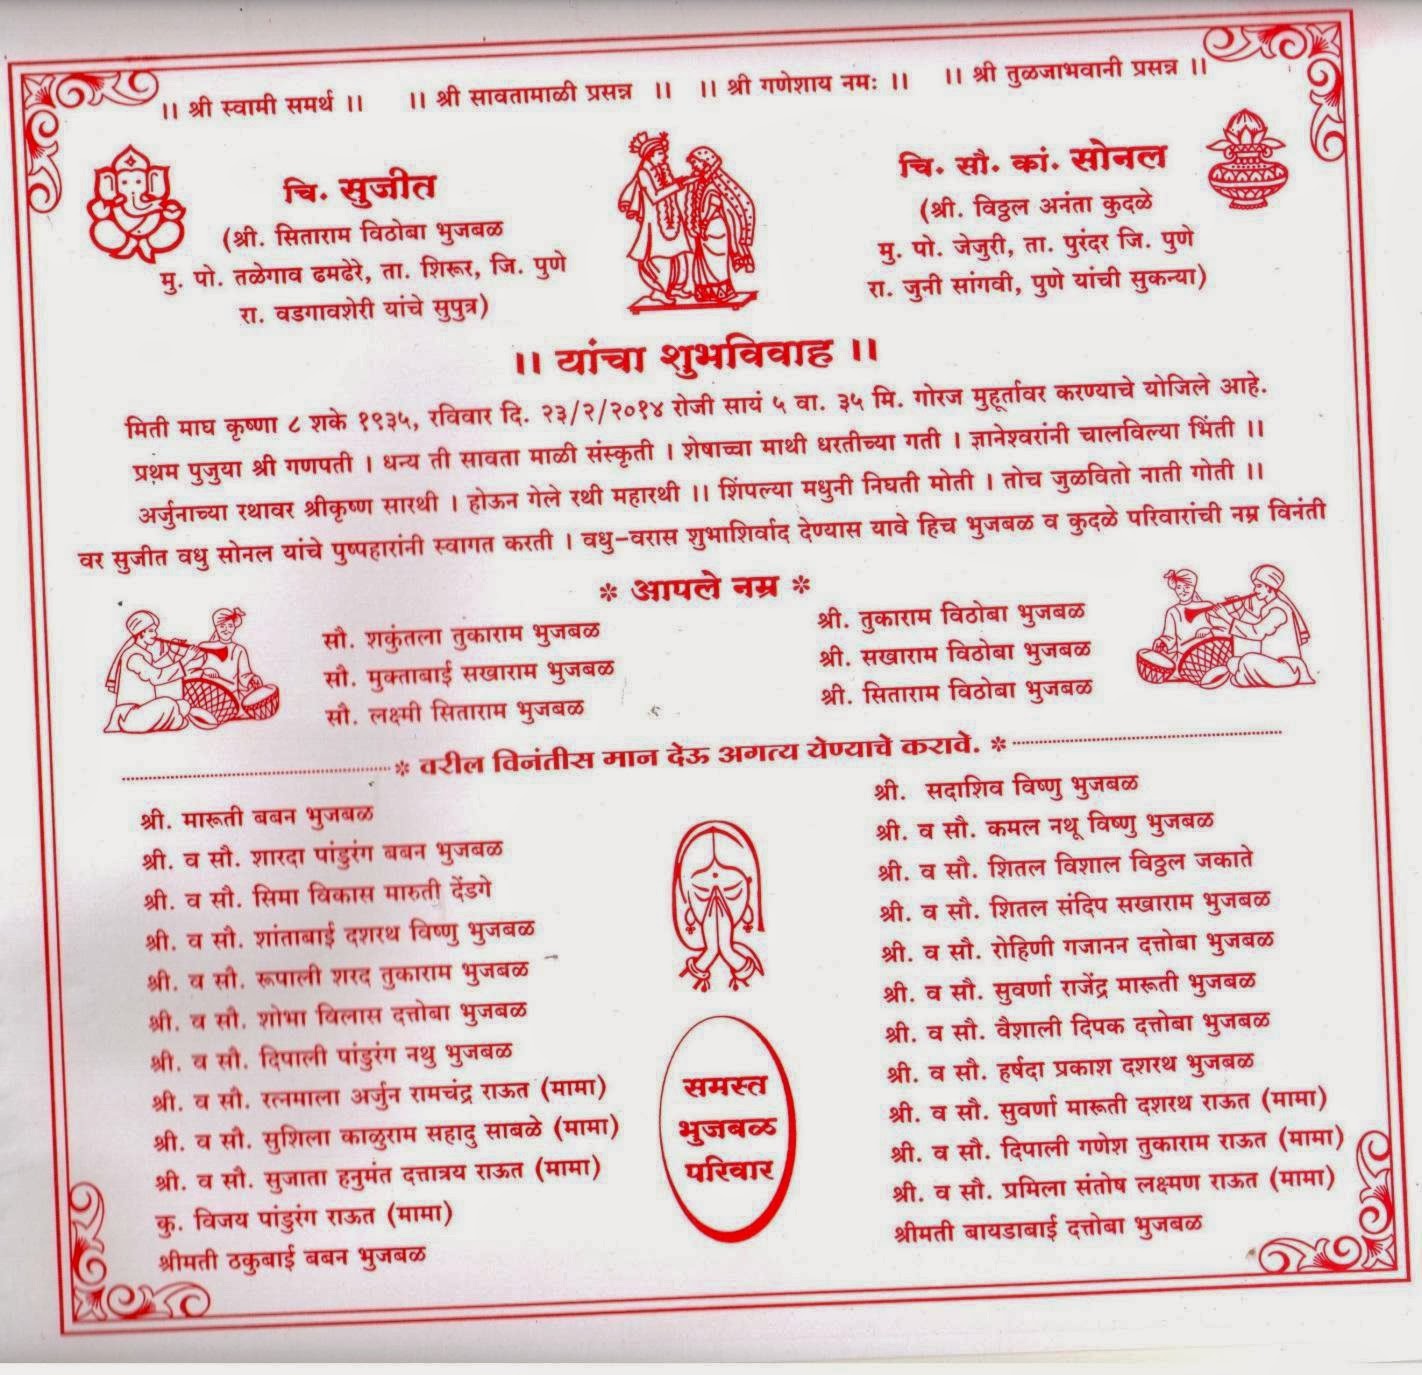 ।। श्री स्वामी समर्थ ।। ।। श्री सावतामाळी प्रसन्न ।। ।। श्री गणेशाय नमः ।। ।। श्री तुळजाभवानी प्रसन्न ।।
चि. सुजीत
(श्री. सिताराम विठोबा भुजबळ
मु. पो. तळेगाव ढमढेरे, ता. शिरूर, जि. पुणे
रा. वडगावशेरी यांचे सुपुत्र)
चि. सौ. कां. सोनल
(श्री. विठ्ठल अनंता कुदळे
मु. पो. जेजुरी, ता. पुरंदर जि. पुणे
रा. जुनी सांगवी, पुणे यांची सुकन्या)
।। यांचा शुभविवाह ।।
मिती माघ कृष्णा ८ शके १९३५, रविवार दि. २३/२/२०१४ रोजी सायं ५ वा. ३५ मि. गोरज मुहूर्तावर करण्याचे योजिले आहे.
प्रथम पुजुया श्री गणपती । धन्य ती सावता माळी संस्कृती । शेषाच्या माथी धरतीच्या गती । ज्ञानेश्वरांनी चालविल्या भिंती ।।
अर्जुनाच्या रथावर श्रीकृष्ण सारथी । होऊन गेले रथी महारथी ।। शिंपल्या मधुनी निघती मोती । तोच जुळवितो नाती गोती ।।
वर सुजीत वधु सोनल यांचे पुष्पहारांनी स्वागत करती । वधु-वरास शुभाशिर्वाद देण्यास यावे हिच भुजबळ व कुदळे परिवारांची नम्र विनंती
* आपले नम्र *
सौ. शकुंतला तुकाराम भुजबळ
सौ. मुक्ताबाई सखाराम भुजबळ
सौ. लक्ष्मी सिताराम भुजबळ
श्री. तुकाराम विठोबा भुजबळ
श्री. सखाराम विठोबा भुजबळ
श्री. सिताराम विठोबा भुजबळ
* वरील विनंतीस मान देऊ अगत्य येण्याचे करावे. *
श्री. मारूती बबन भुजबळ
श्री. व सौ. शारदा पांडुरंग बबन भुजबळ
श्री. व सौ. सिमा विकास मारुती देंडगे
श्री. व सौ. शांताबाई दशरथ विष्णु भुजबळ
श्री. व सौ. रूपाली शरद तुकाराम भुजबळ
श्री. व सौ. शोभा विलास दत्तोबा भुजबळ
श्री. व सौ. दिपाली पांडुरंग नथु भुजबळ
श्री. व सौ. रत्नमाला अर्जुन रामचंद्र राऊत (मामा)
श्री. व सौ. सुशिला काळुराम सहादु साबळे (मामा)
श्री. व सौ. सुजाता हनुमंत दत्तात्रय राऊत (मामा)
कु. विजय पांडुरंग राऊत (मामा)
श्रीमती ठकुबाई बबन भुजबळ
समस्त
भुजबळ
परिवार
श्री. सदाशिव विष्णु भुजबळ
श्री. व सौ. कमल नथू विष्णु भुजबळ
श्री. व सौ. शितल विशाल विठ्ठल जकाते
श्री. व सौ. शितल संदिप सखाराम भुजबळ
श्री. व सौ. रोहिणी गजानन दत्तोबा भुजबळ
श्री. व सौ. सुवर्णा राजेंद्र मारूती भुजबळ
श्री. व सौ. वैशाली दिपक दत्तोबा भुजबळ
श्री. व सौ. हर्षदा प्रकाश दशरथ भुजबळ
श्री. व सौ. सुवर्णा मारूती दशरथ राऊत (मामा)
श्री. व सौ. दिपाली गणेश तुकाराम राऊत (मामा)
श्री. व सौ. प्रमिला संतोष लक्ष्मण राऊत (मामा)
श्रीमती बायडाबाई दत्तोबा भुजबळ